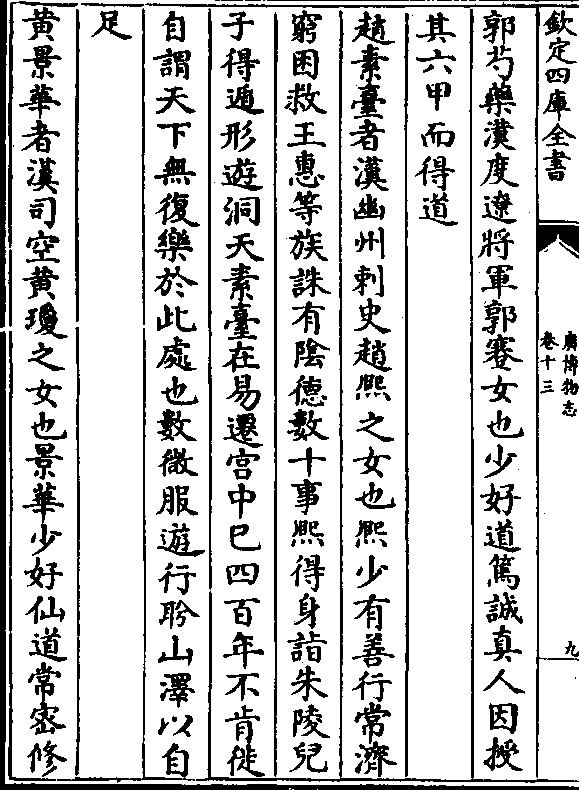 欽定四庫全書
廣博物志
卷十三
九
郭芍藥漢度遼將軍郭騫女也少好道篤誠真人因授
其六甲而得道
趙素臺者漢幽州刺史趙熙之女也熙少有善行常濟
窮困救王惠等族誅有陰德數十事熙得身詣朱陵兒
子得遁形遊洞天素臺在易遷宮中已四百年不肯徙
自謂天下無復樂於此處也數微服遊行盻山澤以自
足
黃景華者漢司空黃瓊之女也景華少好仙道常密修